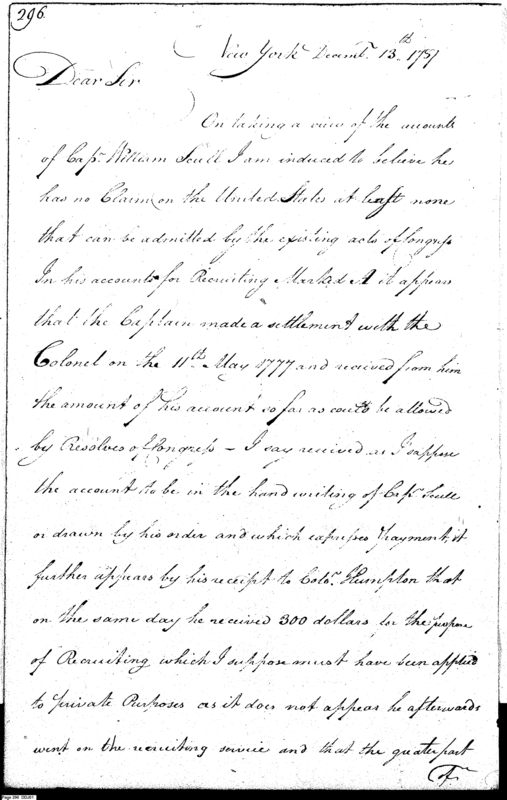 296
New York Decemr. 13th 1787
Dear Sir
On taking a view of the accounts
of Capt. William Scull I am induced to believe he
has no Claim on the United States at least none
that can be admitted by the existing acts of Congress
In his accounts for Recruiting Marked A it appears
that the Captain made a settlement with the
Colonel on the 11th May 1777 and received from him
the amount of his account so far as could be allowed
by Resolves of Congress – I say received as I suppose
the account to be in the hand writing of Capt. Scull
or drawn by his order and which expresses Payment, it
further appears by his receipt to Colo. Humpton that
on the same day he received 300 dollars for the purpose
of Recruiting which I suppose must have been applied
to private Purposes as it does not appear he afterwards
went on the recruiting service and that the greater part
of
Page 296 DDJ01